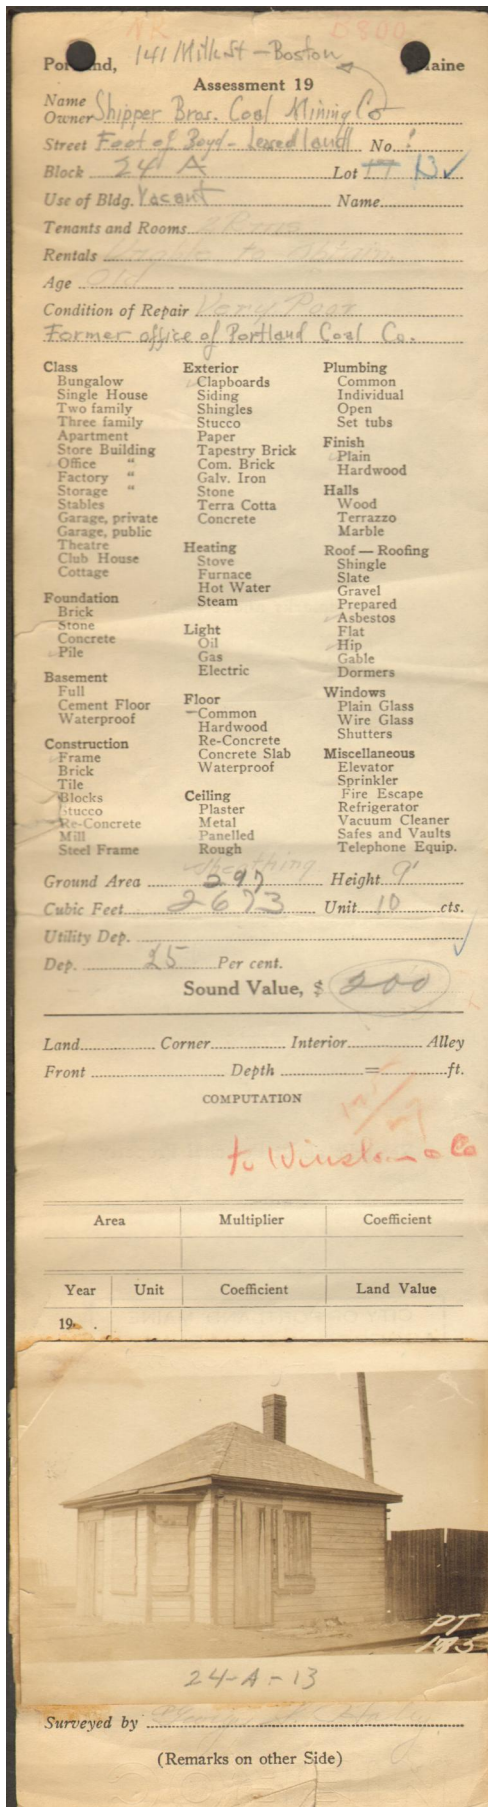 NK 5800
141 Milk St - Boston
Portland, Maine
Assessment 19
Name
Owner Shipper Bros. Coal Mining Co
Street Foot of Boyd - Leased land No. !
Block 24 A Lot 17 13 ✓
Use of Bldg. Vacant Name
Tenants and Rooms 2 Rms
Rentals Unable to obtain
Age Old
Condition of Repair Very Poor
Former office of Portland Coal Co.
Class
Bungalow
Single House
Two family
Three family
Apartment
Store Building
Office "
Factory "
Storage "
Stables
Garage, private
Garage, public
Theatre
Club House
Cottage
Foundation
Brick
Stone
Concrete
Pile
Basement
Full
Cement Floor
Waterproof
Construction
Frame
Brick
Tile
Blocks
Stucco
Re-Concrete
Mill
Steel Frame
Exterior
Clapboards
Siding
Shingles
Stucco
Paper
Tapestry Brick
Com. Brick
Galv. Iron
Stone
Terra Cotta
Concrete
Heating
Stove
Furnace
Hot Water
Steam
Light
Oil
Gas
Electric
Floor
Common
Hardwood
Re-Concrete
Concrete Slab
Waterproof
Ceiling
Plaster
Metal
Panelled
Rough
Sheathing
Plumbing
Common
Individual
Open
Set tubs
Finish
Plain
Hardwood
Halls
Wood
Terrazzo
Marble
Roof — Roofing
Shingle
Slate
Gravel
Prepared
Asbestos
Flat
Hip
Gable
Dormers
Windows
Plain Glass
Wire Glass
Shutters
Miscellaneous
Elevator
Sprinkler
Fire Escape
Refrigerator
Vacuum Cleaner
Safes and Vaults
Telephone Equip.
Ground Area 297 Height 9'
Cubic Feet 2673 Unit 10 cts.
Utility Dep.
Dep. 25 Per cent.
Sound Value, $ 200
Land Corner Interior Alley
Front Depth = ft.
COMPUTATION
to Winslow & Co
Area Multiplier Coefficient
Year Unit Coefficient Land Value
19
PT
185
24-A-13
Surveyed by
(Remarks on other Side)